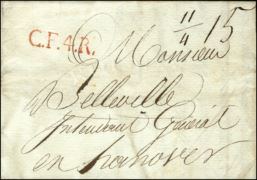 C.F.4.R.
11/4 15
A Monsieur
Belleville
Intendant Général
en hanover